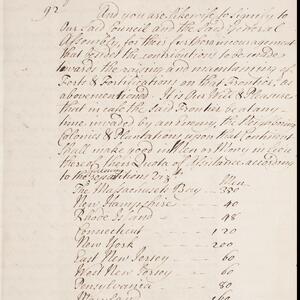 92
And you are likewise to signify to
Our said Council and the said General
Assembly, for their further encouragement
that besides the contributions to be made
towards the raising and maintaining
Forts & Fortifications on that Frontier, as
abovementioned It is Our Will & Pleasure
that in case the said Frontier be at any
time invaded by an enemy, the Neighboring
Colonies & Plantations upon that Continent
Shall make good in Men or Money in lieu
thereof their Quota of Assistance according
to the
Men
The Massachusets Bay — 350
New Hampshire — 40
Rhode Island — 48
Connecticut — 120
New York — 200
East New Jersey — 60
West New Jersey — 60
Pensylvania — 80
Maryland — 160